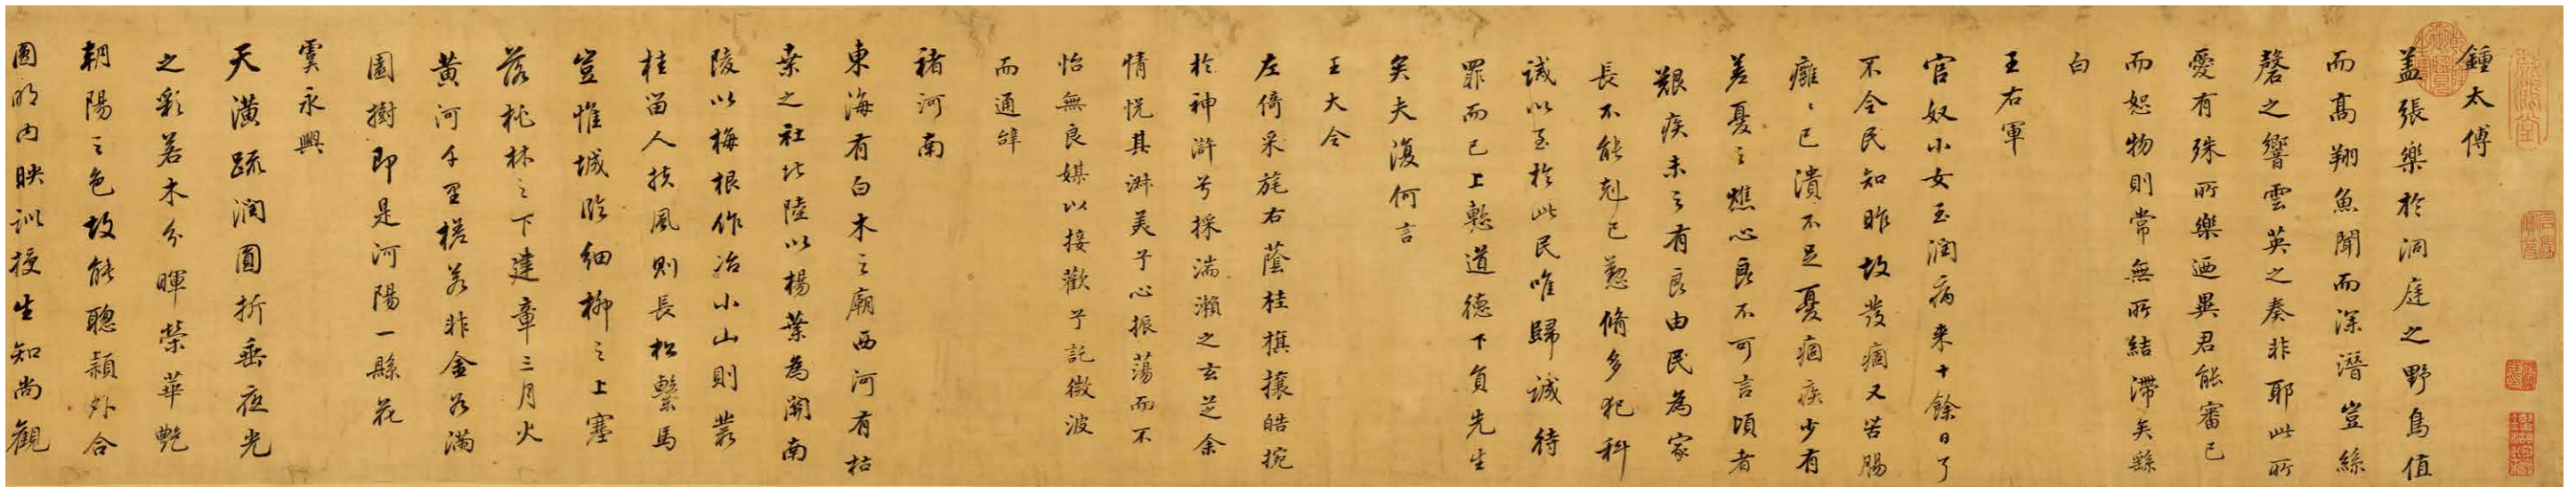 鍾太傅
蓋張樂於洞庭之野鳥值
而高翔魚聞而深潛豈絲
磬之響雲英之奏非耶此所
愛有殊所樂迺異君能審己
而恕物則常無所結滯矣繇
白
王右軍
官奴小女玉潤病來十餘日了
不令民知昨故發痼又苦腸
癰〻已潰不足憂痼疾少有
差憂之燋心良不可言頃者
艱疾未之有良由民為家
長不能剋己懃脩多犯科
誡以至於此民唯歸誠待
罪而已上慙道德下負先生
矣夫復何言
王大令
左倚采旄右蔭桂旗攘皓捥
於神滸兮採湍瀨之玄芝余
情悅其淑美兮心振蕩而不
怡無良媒以接歡兮託微波
而通辝
褚河南
東海有白木之廟西河有枯
桒之社北陸以楊葉為關南
陵以梅根作冶小山則叢
桂留人扶風則長松繫馬
豈惟城臨細柳之上塞
落桃林之下建章三月火
黃河千里槎若非金谷滿
園樹即是河陽一縣花
虞永興
天潢疏潤圓折垂夜光
之彩若木分暉榮華艷
朝陽之色故能聰穎外合
圓明內映訓授生知尚觀